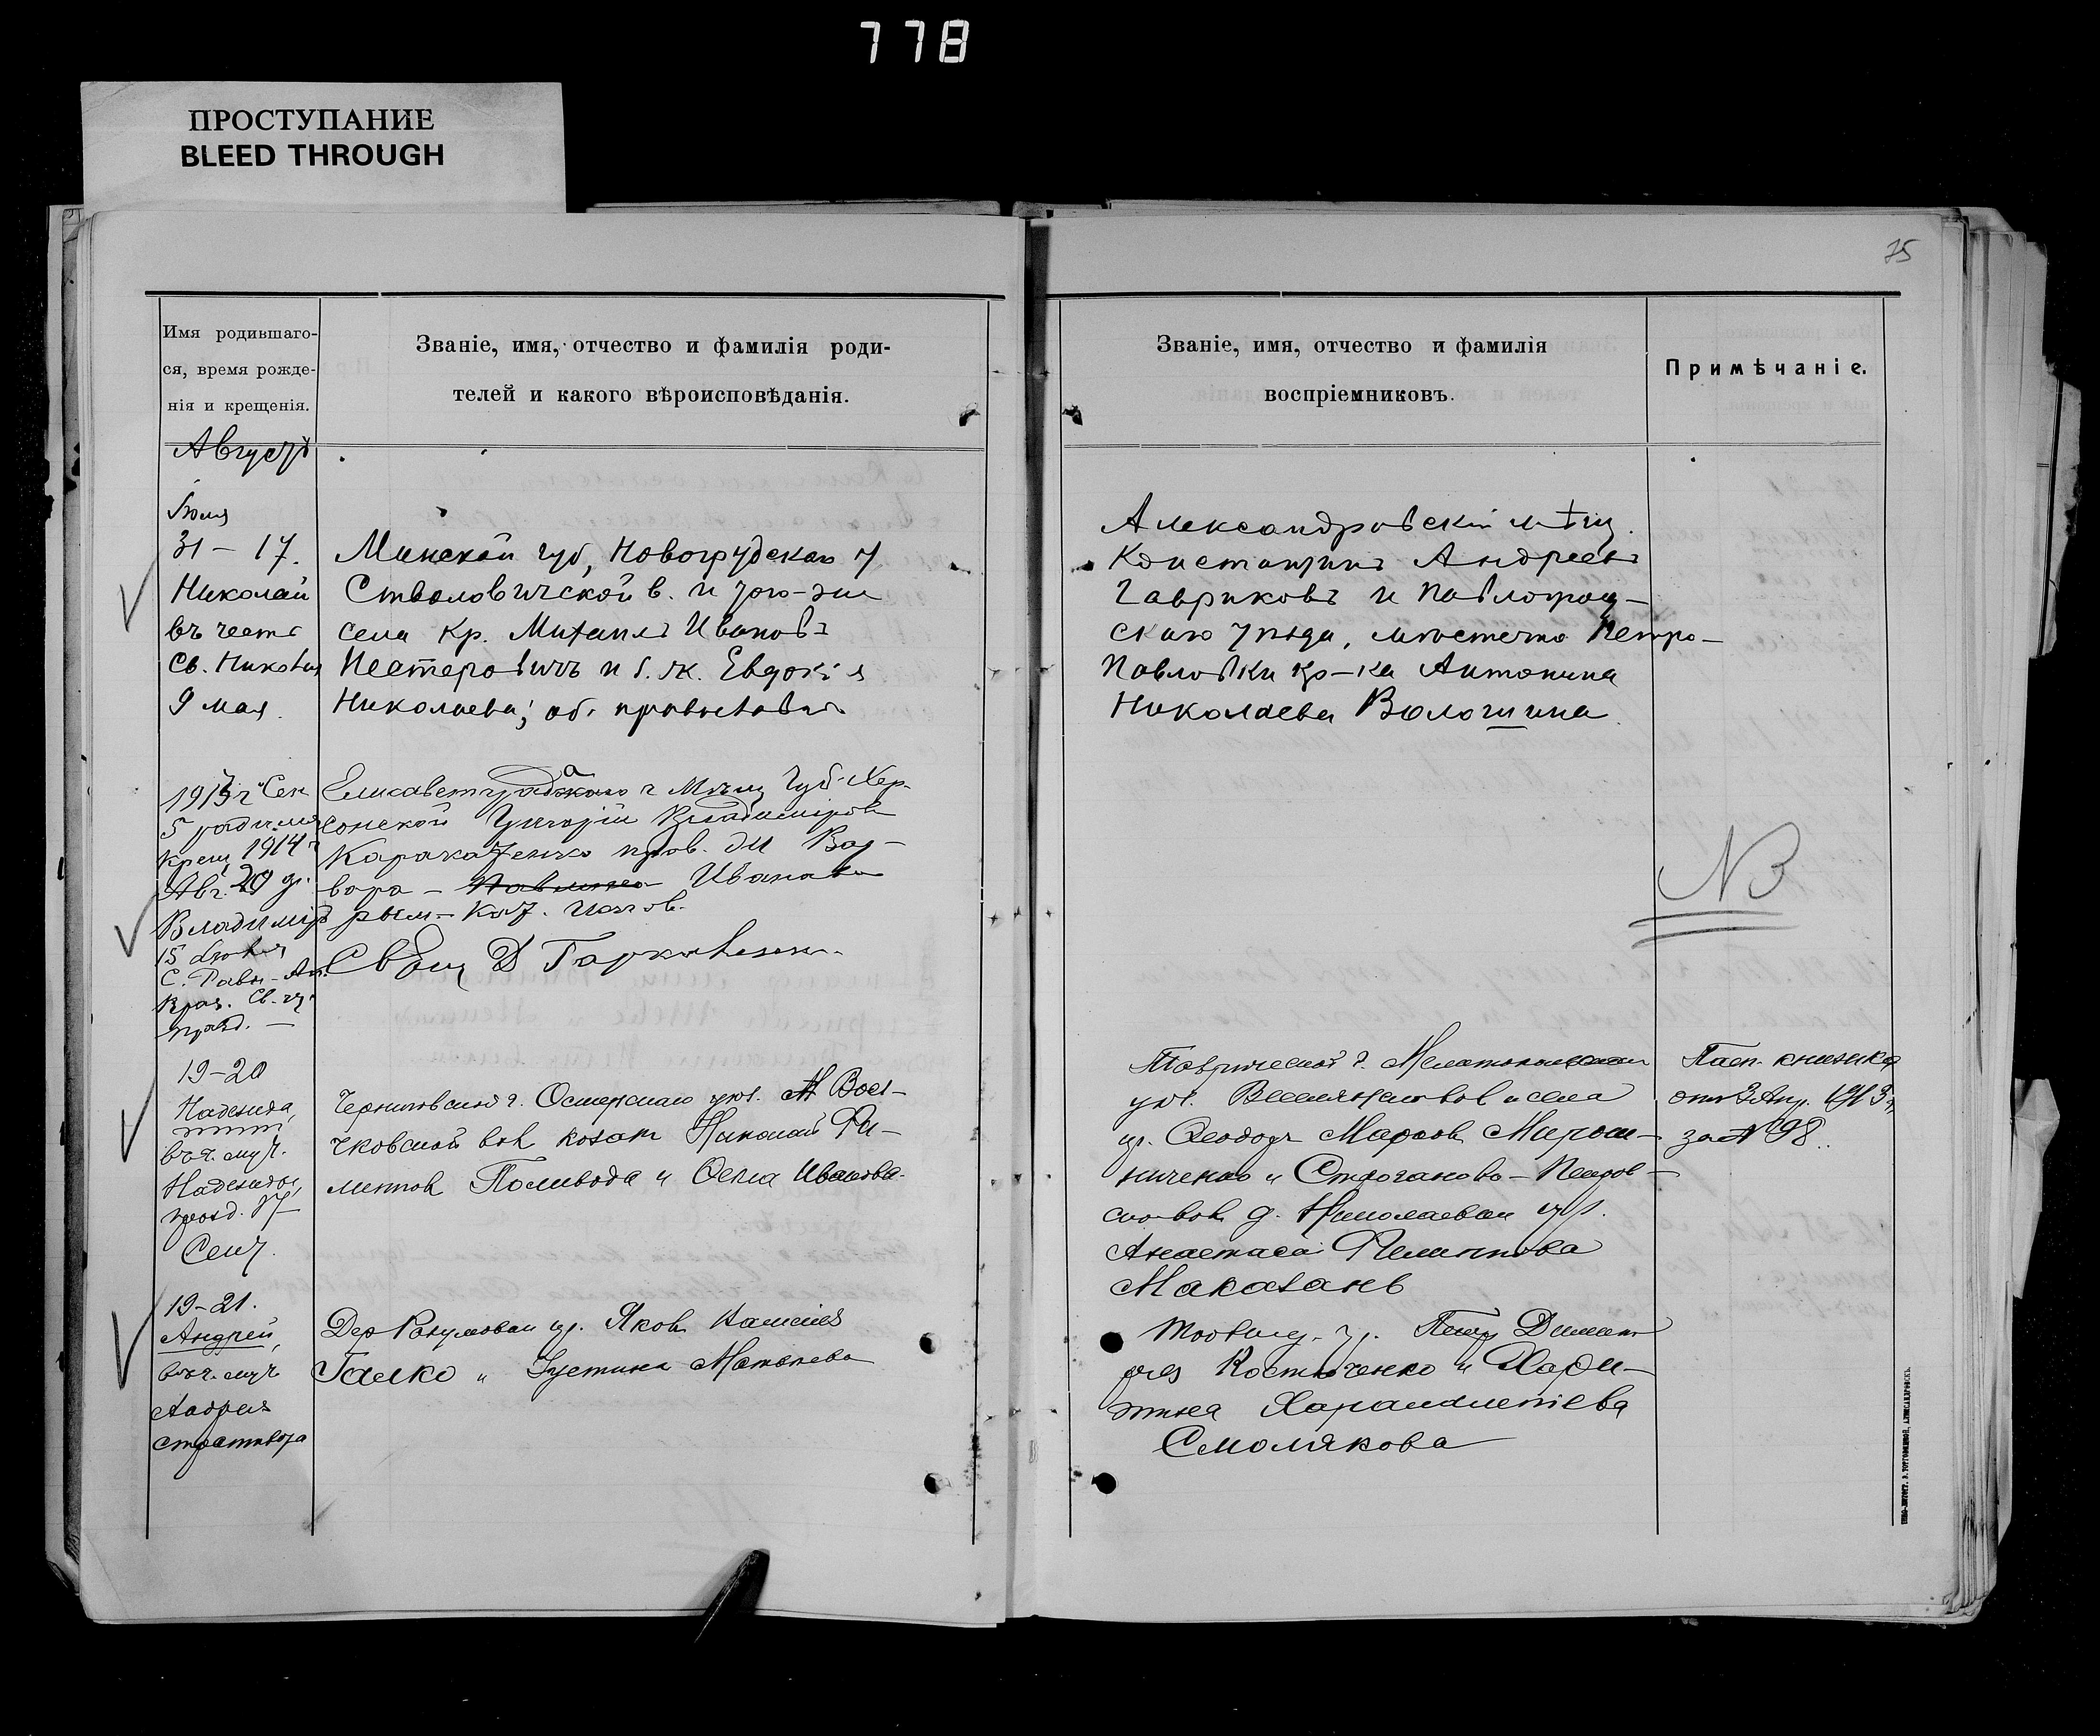 778
ПРОСТУПАНИЕ
BLEED THROUGH
75
Имя родившаго-
ся, время рожде-
нія и крещенія.
Званіе, имя, отчество и фамилія роди-
телей и какого вѣроисповѣданія.
Званіе, имя, отчество и фамилія
воспріемниковъ.
Примѣчаніе.
Августъ
Іюля
31 – 17.
Николай
въ честь
Св. Николая
9 мая.
Минской губ, Новогрудскаго у
Стволовичской в. и того-же
села кр. Михаилъ Ивановъ
Нестеровичъ и з. ж. Евдокія
Николаева; об. православн.
Александровскій мѣщ.
Константинъ Андреевъ
Гавриковъ и Павлоград-
скаго уѣзда, мѣстечка Петро-
Павловки кр-ка Антонина
Николаева Волошина.
1913 г Сен
5 родился
крещ 1914 г
Авг. 20 д.
Владиміръ
15 Іюля
С. Равн-Ап.
Княз.
празд. –
Елисаветград г Мѣщ Губ. Хер-
сонской Григорій Владиміров
пров. ди Вар-
вара – Иванова
рим-кат. испов.
Свящ Д
NB
19–20
Надежда,
въ ч. муч.
Надежды,
празд. 17
Сент.
Черниговской г. Остерскаго уѣз.
чковской вол козак Николай Фи-
липпов Поливода и Елена Иванова.
Таврической г. Мелитопольскаго
уѣз. вол и села
кр. Ѳеодоръ Марков Мирош-
ниченко и Строганово – Петров-
ской вол д. Николаевки кр.
Анастасія Филиппова
Маказанъ
Пасп. книжка
от 3 Апр. 1913 г,
за № 98.
19–21.
Андрей,
въ ч. муч
Андрея
стратилата
Дер Разумовки кр. Яков
Галко и Іустина Матвѣева
кр. Петр Димит
ріев Костюченко и Хари-
тина Харалампіева
Смолякова